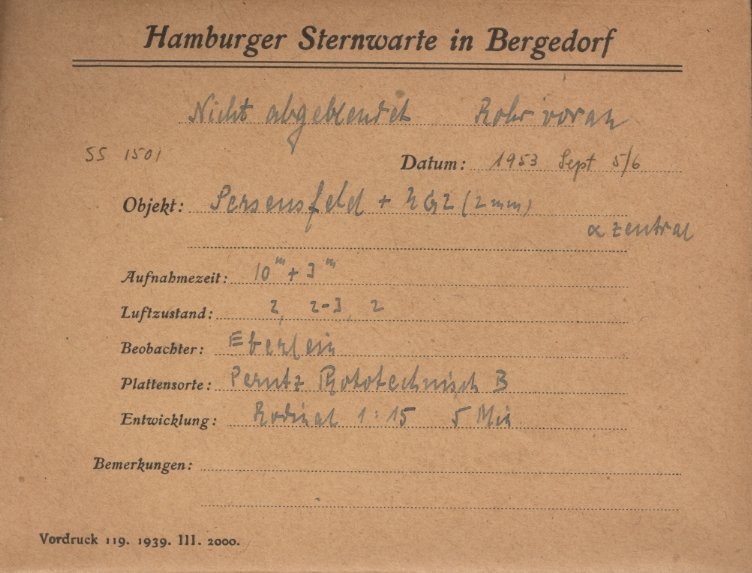 Hamburger Sternwarte in Bergedorf
Nicht abgeblendet Rohr voran
SS 1501
Datum: 1953 Sept 5/6
Objekt: Perseusfeld + RG2 (2mm)
α zentral
Aufnahmezeit: 10ᵐ + 3ᵐ
Luftzustand: 2, 2-3, 2
Beobachter: Eberlein
Plattensorte: Perutz Phototechnisch B
Entwicklung: Rodinal 1:15 5 Min
Bemerkungen:
Vordruck 119. 1939. III. 2000.